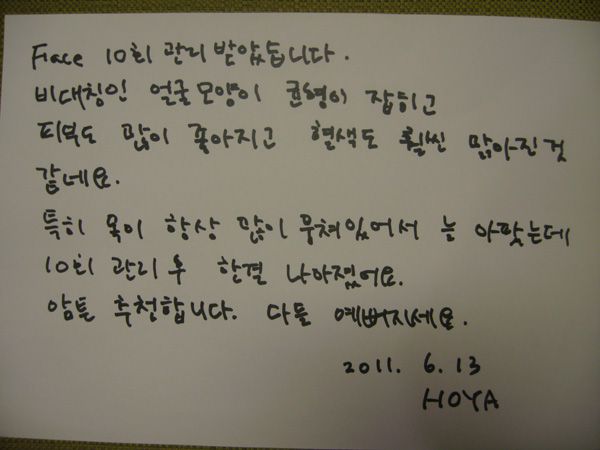 Face 10회 관리 받았습니다.
비대칭인 얼굴모양이 균형이 잡히고
피부도 많이 좋아지고 혈색도 훨씬 맑아진것
같네요.
특히 목이 항상 많이 뭉쳐있어서 늘 아팠는데
10회 관리 후 한결 나아졌어요.
암튼 추천합니다. 다들 예뻐지세요.
2011. 6. 13
HOYA